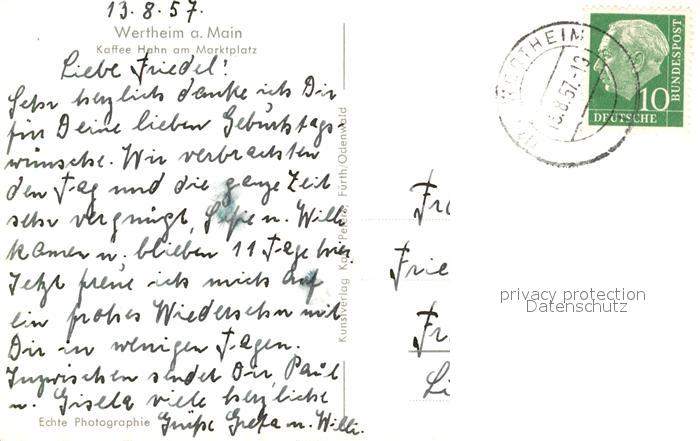 13.8.57.
Wertheim a. Main
Kaffee Hahn am Marktplatz
Liebe Friedel!
Sehr herzlich danke ich Dir
für Deine lieben Geburtstags-
wünsche. Wir verbrachten
den Tag und die ganze Zeit
sehr vergnügt, u. Willi
kamen u. blieben 11 Tage hier.
Jetzt freue ich mich auf
ein frohes Wiedersehn mit
Dir in wenigen Tagen.
Inzwischen sendet Dir, Paul
u. Gisela viele herzliche
Grüße Greta u. Willi.
Echte Photographie
Kunstverlag Karl Fürth/Odenwald
WERTHEIM
13.8.57.-19
10
DEUTSCHE
BUNDESPOST
Fr
Frie
Fr
Li
privacy protection
Datenschutz